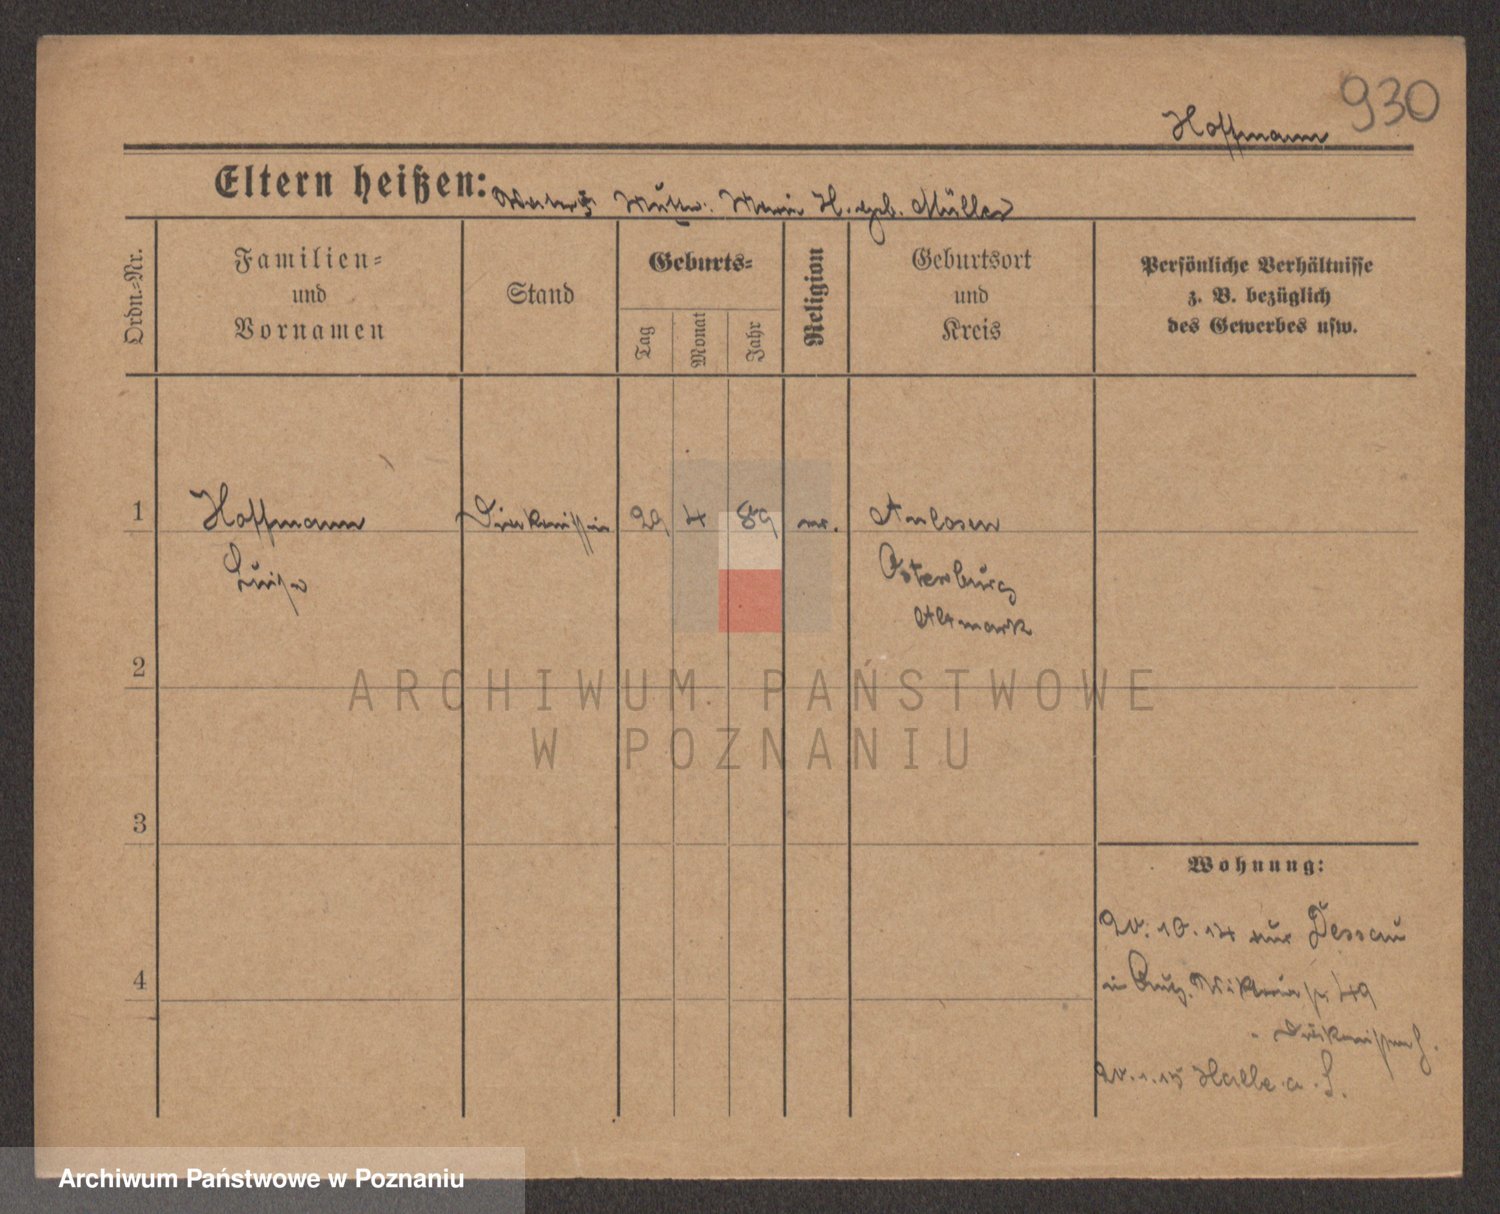 930
Hoffmann
Eltern heißen: Mutter: Marie H. geb. Müller
Ordn.-Nr.
Familien-
und
Vornamen
Stand
Geburts-
Tag
Monat
Jahr
Religion
Geburtsort
und
Kreis
Persönliche Verhältnisse
z. B. bezüglich
des Gewerbes usw.
1 Hoffmann Diakonissin 29 4 89 ev. Aulosen
Luise Osterburg
Altmark
2
ARCHIWUM PAŃSTWOWE
W POZNANIU
3
Wohnung:
20.10.14 aus Dessau
4
in Aug. Viktoria str 49
Diakonissenh.
20.1.15 Halle a. S.
Archiwum Państwowe w Poznaniu